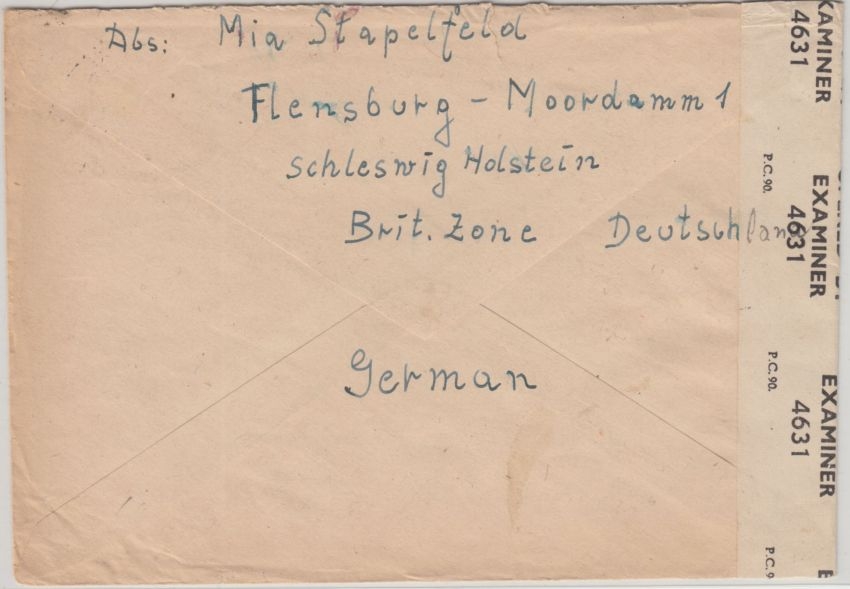 Abs: Mia Stapelfeld
Flensburg - Moordamm 1
Schleswig Holstein
Brit. Zone Deutschland
German
EXAMINER 4631
P.C. 90.
EXAMINER 4631
P.C. 90.
EXAMINER 4631
P.C. 9